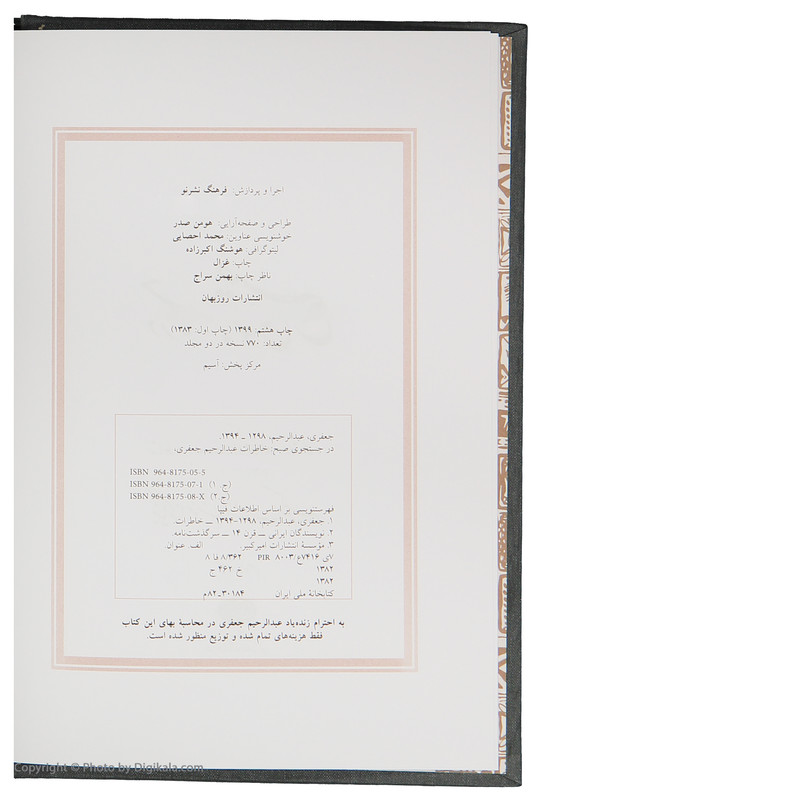 اجرا و پردازش: فرهنگ نشرنو
طراحی و صفحه‌آرایی: هومن صدر
خوشنویسی عناوین: محمد احصایی
لیتوگرافی: هوشنگ اکبرزاده
چاپ: غزال
ناظر چاپ: بهمن سراج
انتشارات روزبهان
چاپ هشتم: ۱۳۹۹ (چاپ اول: ۱۳۸۳)
تعداد: ۷۷۰ نسخه در دو مجلد
مرکز پخش: آسیم
جعفری، عبدالرحیم، ۱۲۹۸ ـ ۱۳۹۴.
در جستجوی صبح: خاطرات عبدالرحیم جعفری،
ISBN 964-8175-05-5
ISBN 964-8175-07-1 (ج. ۱)
ISBN 964-8175-08-X (ج. ۲)
فهرستنویسی بر اساس اطلاعات فیپا
۱. جعفری، عبدالرحیم، ۱۲۹۸-۱۳۹۴ ــ خاطرات.
۲. نویسندگان ایرانی ــ قرن ۱۴ ــ سرگذشت‌نامه.
۳. مؤسسهٔ انتشارات امیرکبیر. الف. عنوان.
۷ی ۷۴۱۶ع/ PIR ۸۰۰۳ ۸/۳۶۲ فا ۸
۱۳۸۲ خ ۴۶۲ ج
۱۳۸۲
کتابخانهٔ ملی ایران ۳۰۱۸۴ـ۸۲م
به احترام زنده‌یاد عبدالرحیم جعفری در محاسبهٔ بهای این کتاب
فقط هزینه‌های تمام شده و توزیع منظور شده است.
Copyright © Photo by Digikala.com